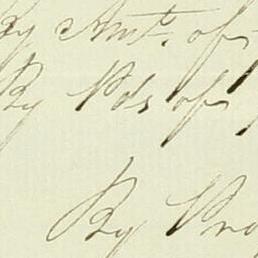 By Amt. of
By Pds of
By Pro